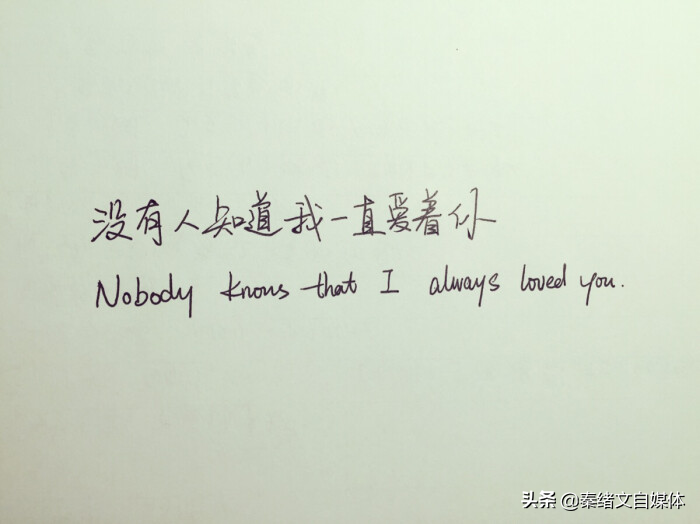 没有人知道我一直爱着你
Nobody knows that I always loved you.
头条 @秦绪文自媒体